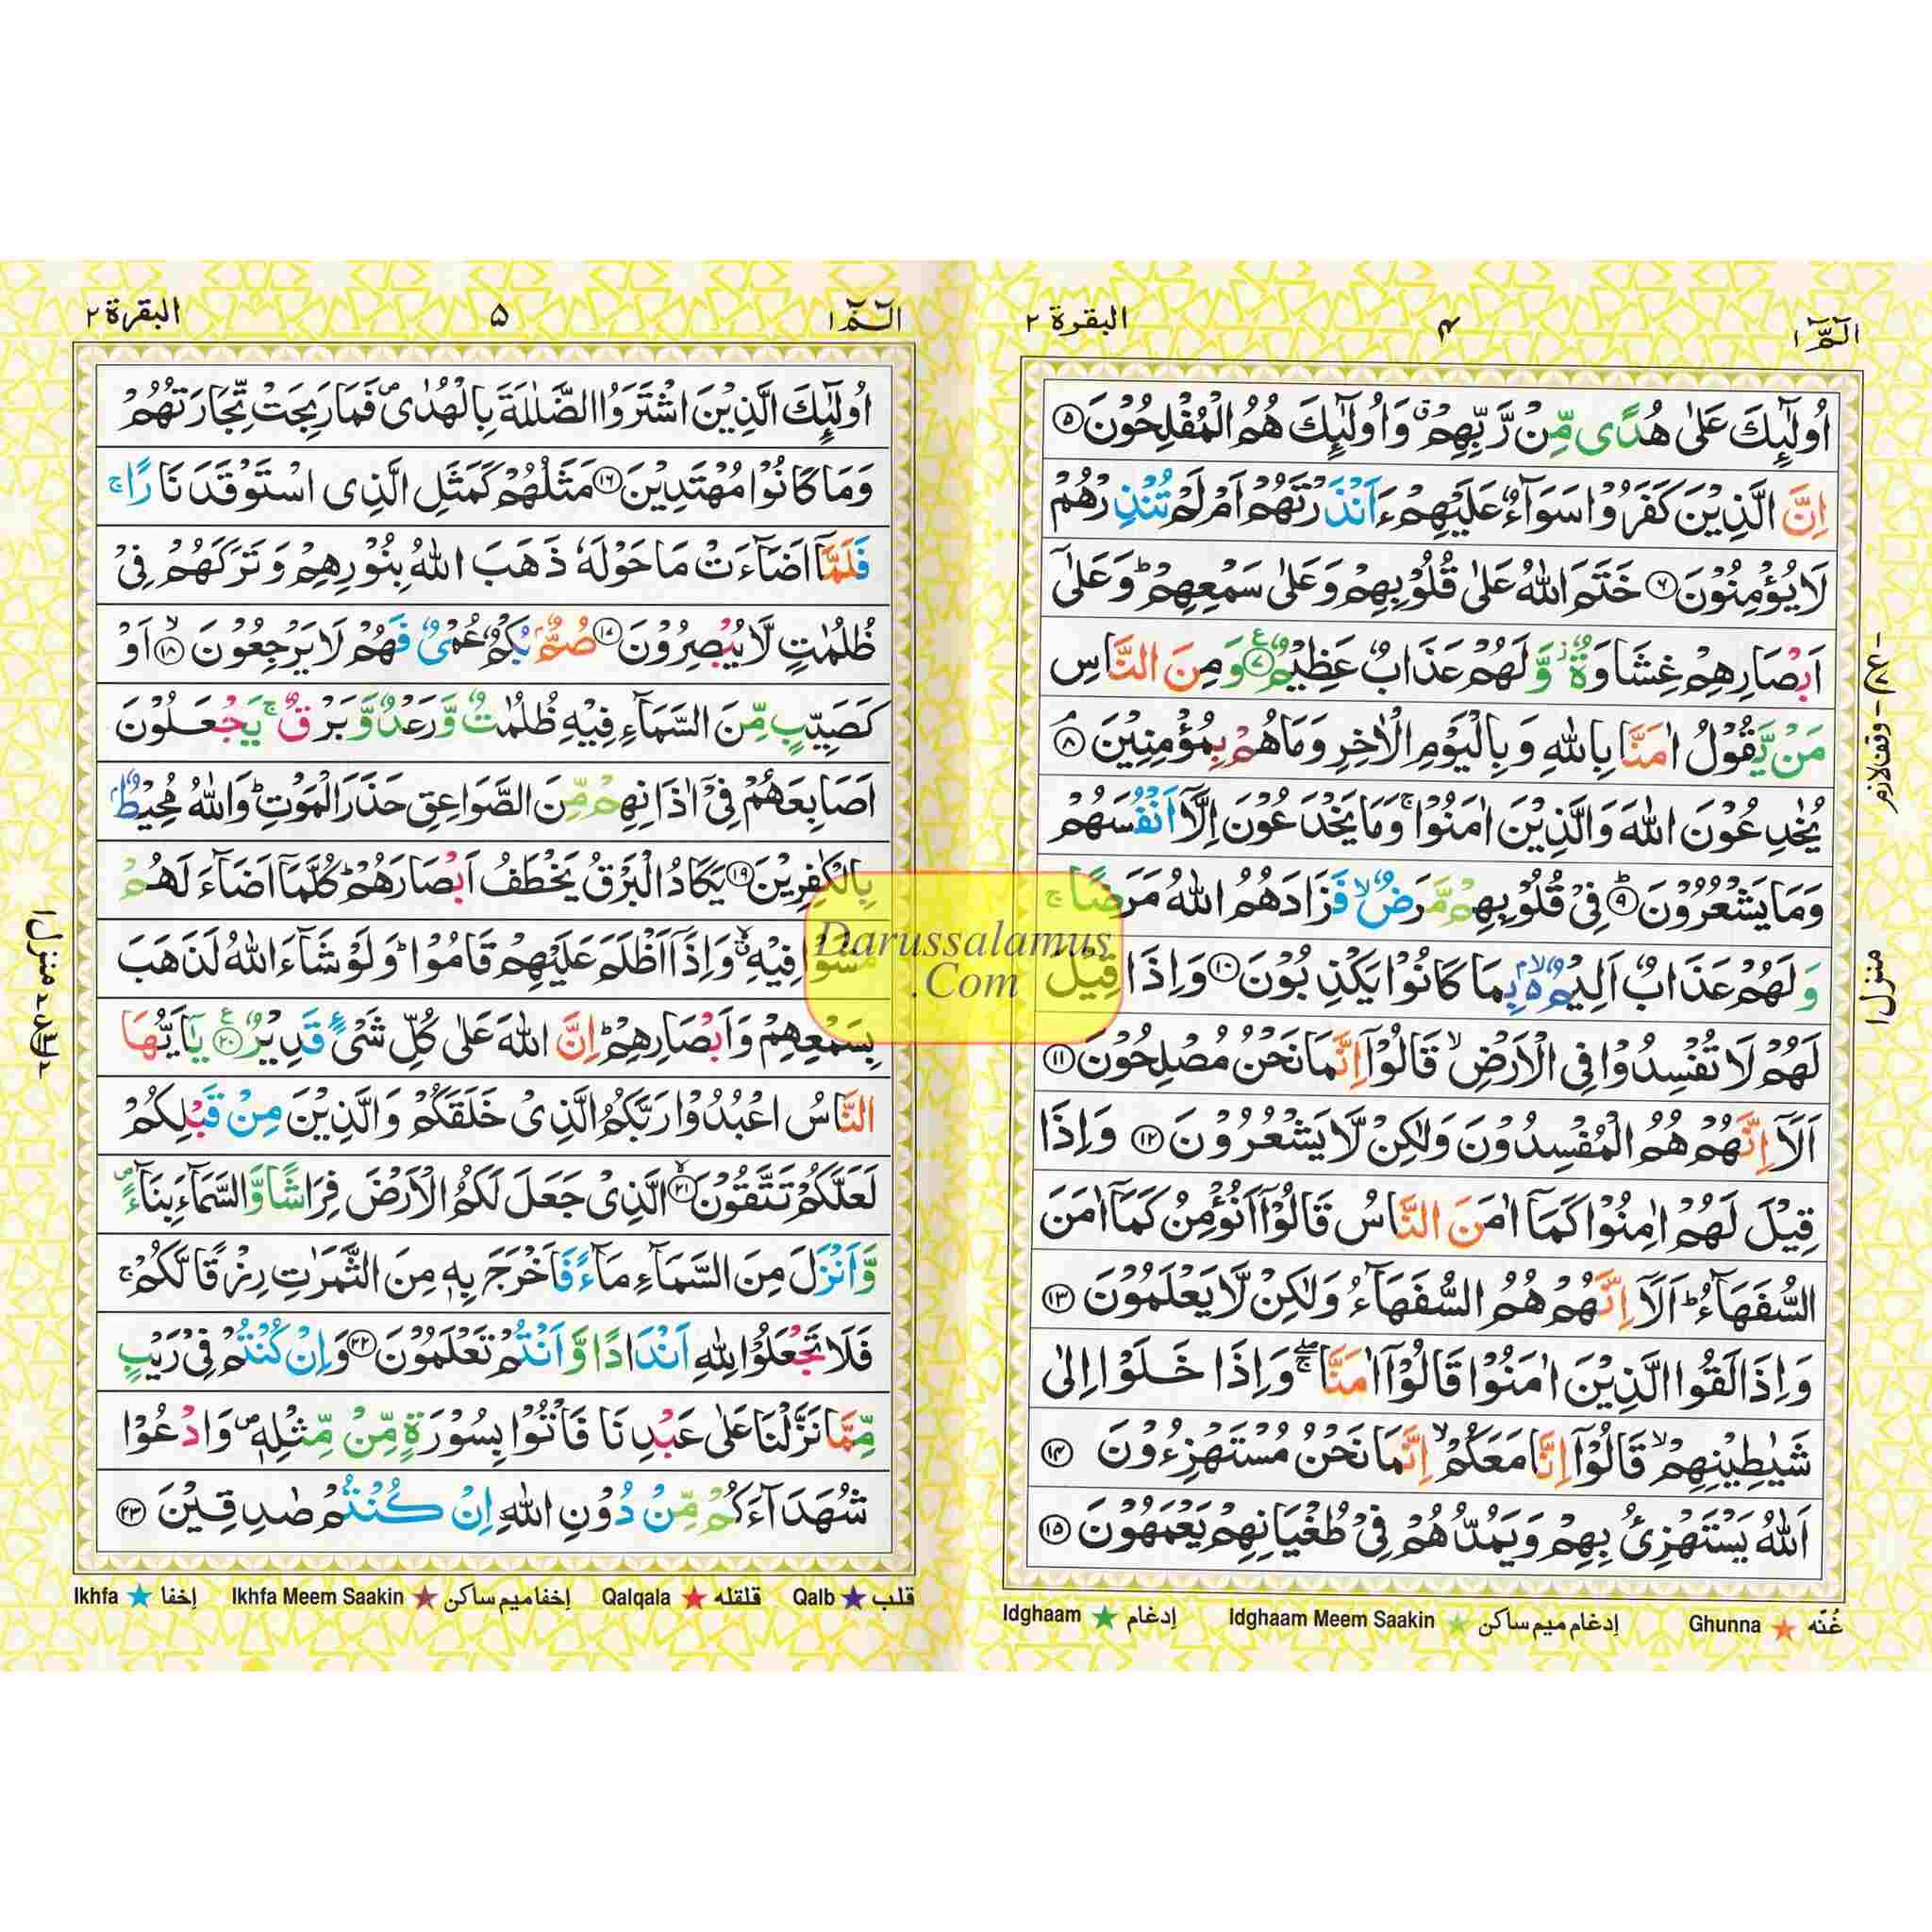 الٓـمّٓ ١
۴
البقرة ٢
اُولٰٓئِكَ عَلٰى هُدًى مِّنْ رَّبِّهِمْ ۗ وَاُولٰٓئِكَ هُمُ الْمُفْلِحُوْنَ ۝٥
اِنَّ الَّذِيْنَ كَفَرُوْا سَوَآءٌ عَلَيْهِمْ ءَاَنْذَرْتَهُمْ اَمْ لَمْ تُنْذِرْهُمْ
لَا يُؤْمِنُوْنَ ۝٦ خَتَمَ اللّٰهُ عَلٰى قُلُوْبِهِمْ وَعَلٰى سَمْعِهِمْ ؕ وَعَلٰٓى
اَبْصَارِهِمْ غِشَاوَةٌ ؗ وَّلَهُمْ عَذَابٌ عَظِيْمٌ ۝٧ ع وَمِنَ النَّاسِ
مَنْ يَّقُوْلُ اٰمَنَّا بِاللّٰهِ وَبِالْيَوْمِ الْاٰخِرِ وَمَا هُمْ بِمُؤْمِنِيْنَ ۘ ۝٨
يُخٰدِعُوْنَ اللّٰهَ وَالَّذِيْنَ اٰمَنُوْا ۚ وَمَا يَخْدَعُوْنَ اِلَّآ اَنْفُسَهُمْ
وَمَا يَشْعُرُوْنَ ؕ ۝٩ فِيْ قُلُوْبِهِمْ مَّرَضٌ ۙ فَزَادَهُمُ اللّٰهُ مَرَضًا ۚ
وَلَهُمْ عَذَابٌ اَلِيْمٌۢ ۙ۬ بِمَا كَانُوْا يَكْذِبُوْنَ ۝١٠ وَاِذَا قِيْلَ
لَهُمْ لَا تُفْسِدُوْا فِى الْاَرْضِ ۙ قَالُوْٓا اِنَّمَا نَحْنُ مُصْلِحُوْنَ ۝١١
اَلَآ اِنَّهُمْ هُمُ الْمُفْسِدُوْنَ وَلٰكِنْ لَّا يَشْعُرُوْنَ ۝١٢ وَاِذَا
قِيْلَ لَهُمْ اٰمِنُوْا كَمَآ اٰمَنَ النَّاسُ قَالُوْٓا اَنُؤْمِنُ كَمَآ اٰمَنَ
السُّفَهَآءُ ؕ اَلَآ اِنَّهُمْ هُمُ السُّفَهَآءُ وَلٰكِنْ لَّا يَعْلَمُوْنَ ۝١٣
وَاِذَا لَقُوا الَّذِيْنَ اٰمَنُوْا قَالُوْٓا اٰمَنَّا ۖۚ وَاِذَا خَلَوْا اِلٰى
شَيٰطِيْنِهِمْ ۙ قَالُوْٓا اِنَّا مَعَكُمْ ۙ اِنَّمَا نَحْنُ مُسْتَهْزِءُوْنَ ۝١٤
اَللّٰهُ يَسْتَهْزِئُ بِهِمْ وَيَمُدُّهُمْ فِيْ طُغْيَانِهِمْ يَعْمَهُوْنَ ۝١٥
وقف لازم
منزل ١
غُنّه ★ Ghunna إدغام ميم ساكن ★ Idghaam Meem Saakin إدغام ★ Idghaam
الٓـمّٓ ١
۵
البقرة ٢
اُولٰٓئِكَ الَّذِيْنَ اشْتَرَوُا الضَّلٰلَةَ بِالْهُدٰى ۪ فَمَا رَبِحَتْ تِّجَارَتُهُمْ
وَمَا كَانُوْا مُهْتَدِيْنَ ۝١٦ مَثَلُهُمْ كَمَثَلِ الَّذِى اسْتَوْقَدَ نَارًا ۚ
فَلَمَّآ اَضَآءَتْ مَا حَوْلَهٗ ذَهَبَ اللّٰهُ بِنُوْرِهِمْ وَتَرَكَهُمْ فِيْ
ظُلُمٰتٍ لَّا يُبْصِرُوْنَ ۝١٧ صُمٌّۢ بُكْمٌ عُمْىٌ فَهُمْ لَا يَرْجِعُوْنَ ۙ ۝١٨ اَوْ
كَصَيِّبٍ مِّنَ السَّمَآءِ فِيْهِ ظُلُمٰتٌ وَّرَعْدٌ وَّبَرْقٌ ۚ يَجْعَلُوْنَ
اَصَابِعَهُمْ فِيْٓ اٰذَانِهِمْ مِّنَ الصَّوَاعِقِ حَذَرَ الْمَوْتِ ؕ وَاللّٰهُ مُحِيْطٌۢ
بِالْكٰفِرِيْنَ ۝١٩ يَكَادُ الْبَرْقُ يَخْطَفُ اَبْصَارَهُمْ ؕ كُلَّمَآ اَضَآءَ لَهُمْ
مَّشَوْا فِيْهِ ۙ وَاِذَآ اَظْلَمَ عَلَيْهِمْ قَامُوْا ؕ وَلَوْ شَآءَ اللّٰهُ لَذَهَبَ
بِسَمْعِهِمْ وَاَبْصَارِهِمْ ؕ اِنَّ اللّٰهَ عَلٰى كُلِّ شَىْءٍ قَدِيْرٌ ۝٢٠ ع يٰٓاَيُّهَا
النَّاسُ اعْبُدُوْا رَبَّكُمُ الَّذِيْ خَلَقَكُمْ وَالَّذِيْنَ مِنْ قَبْلِكُمْ
لَعَلَّكُمْ تَتَّقُوْنَ ۙ ۝٢١ الَّذِيْ جَعَلَ لَكُمُ الْاَرْضَ فِرَاشًا وَّالسَّمَآءَ بِنَآءً ۪
وَّاَنْزَلَ مِنَ السَّمَآءِ مَآءً فَاَخْرَجَ بِهٖ مِنَ الثَّمَرٰتِ رِزْقًا لَّكُمْ ۚ
فَلَا تَجْعَلُوْا لِلّٰهِ اَنْدَادًا وَّاَنْتُمْ تَعْلَمُوْنَ ۝٢٢ وَاِنْ كُنْتُمْ فِيْ رَيْبٍ
مِّمَّا نَزَّلْنَا عَلٰى عَبْدِنَا فَاْتُوْا بِسُوْرَةٍ مِّنْ مِّثْلِهٖ ۪ وَادْعُوْا
شُهَدَآءَكُمْ مِّنْ دُوْنِ اللّٰهِ اِنْ كُنْتُمْ صٰدِقِيْنَ ۝٢٣
منزل ١
قلب ★ Qalb قلقله ★ Qalqala إخفا ميم ساكن ★ Ikhfa Meem Saakin إخفا ★ Ikhfa
Darussalamus
.Com